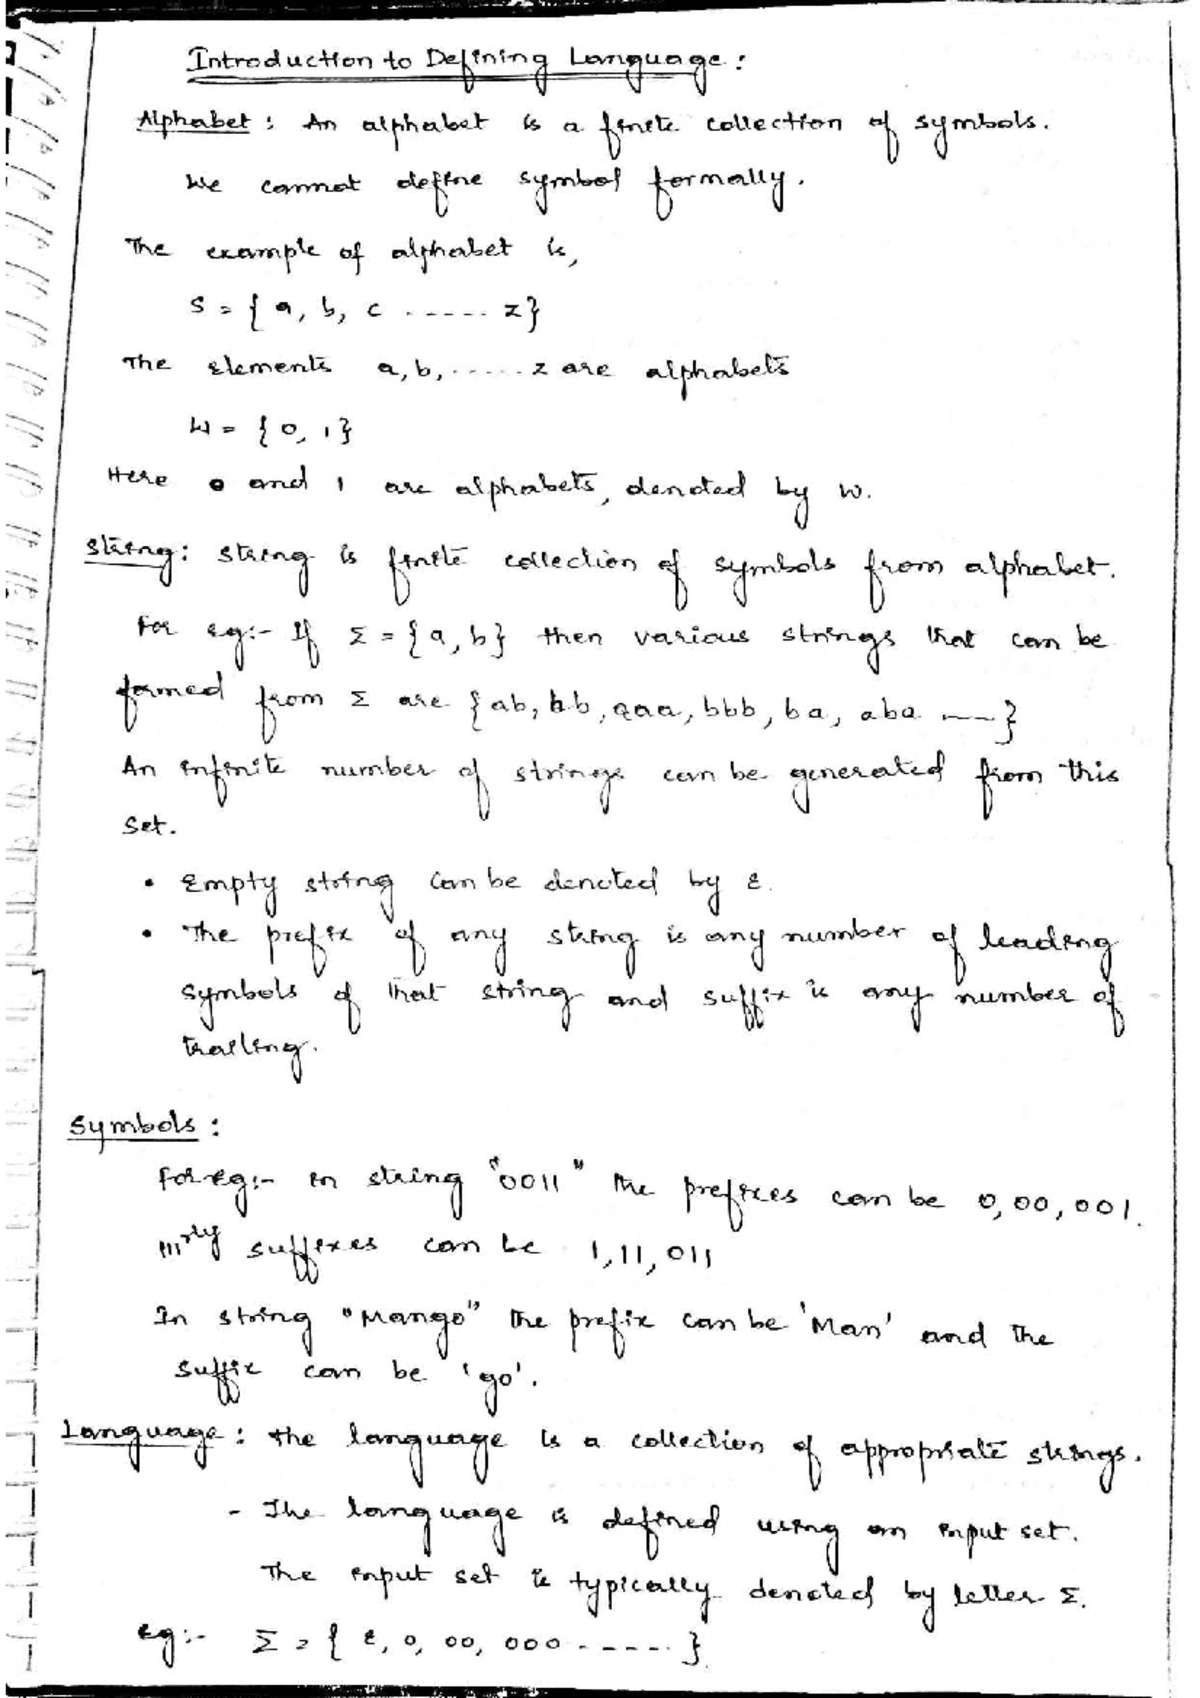 Introduction to Defining Language:
Alphabet: An alphabet is a finite collection of symbols.
We cannot define symbol formally.
The example of alphabet is,
S = { a, b, c ...... z}
The elements a, b, ...... z are alphabets
W = {0, 1}
Here 0 and 1 are alphabets, denoted by W.
String: String is finite collection of symbols from alphabet.
For eg:- If Σ = {a, b} then various strings that can be
formed from Σ are {ab, bb, aaa, bbb, ba, aba ----}
An infinite number of strings can be generated from this
set.
• Empty string can be denoted by ε.
• The prefix of any string is any number of leading
symbols of that string and suffix is any number of
trailing.
Symbols:
For eg:- In string "0011" the prefixes can be 0, 00, 001.
|||rly suffixes can be 1, 11, 011
In string "Mango" the prefix can be 'Man' and the
suffix can be 'go'.
Language: The language is a collection of appropriate strings.
- The language is defined using an input set.
The input set is typically denoted by letter Σ.
Eg:- Σ = { ε, 0, 00, 000 ------ }